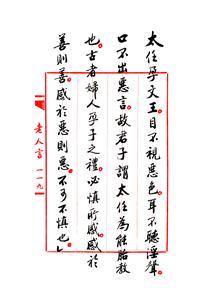 太任孕文王目不視惡色耳不聽淫聲
口不出惡言故君子謂太任為能胎教
也古者婦人孕子之禮必慎所感感於
善則善感於惡則惡不可不慎也」
老人言 一一九